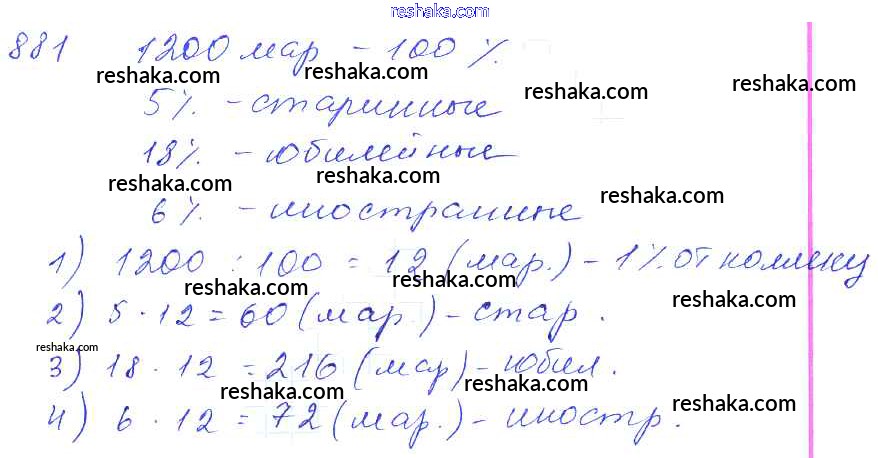 reshaka.com
881 1200 мар – 100 %.
reshaka.com reshaka.com reshaka.com
5%. – старинные
reshaka.com
18%. – юбилейные
reshaka.com reshaka.com
6%. – иностранные
reshaka.com
1) 1200 : 100 = 12 (мар.) – 1% от коллекц
reshaka.com reshaka.com reshaka.com
2) 5 · 12 = 60 (мар.) – стар.
reshaka.com
3) 18 · 12 = 216 (мар) – юбил.
reshaka.com reshaka.com reshaka.com
4) 6 · 12 = 72 (мар.) – иностр.